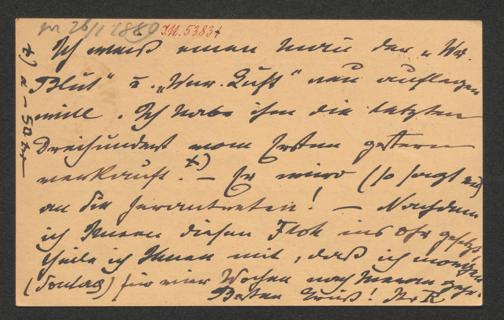 26/1 1889 I.N. 53834
Ich weiß einen Mann der „Wr.
Blut“ u. „Wnr. Luft“ neu auflegen
will. Ich habe ihm die letzten
Dreihundert vom Ersten gestern
verkauft. x) – Er wird (so sagt er)
an Sie herantreten! – Nachdem
ich Ihnen diesen Floh ins Ohr gesetzt
theile ich Ihnen mit, daß ich morgen
(Sonntag) für vier Wochen nach Meran gehe.
Besten Gruß! Ihr
x) a – 50